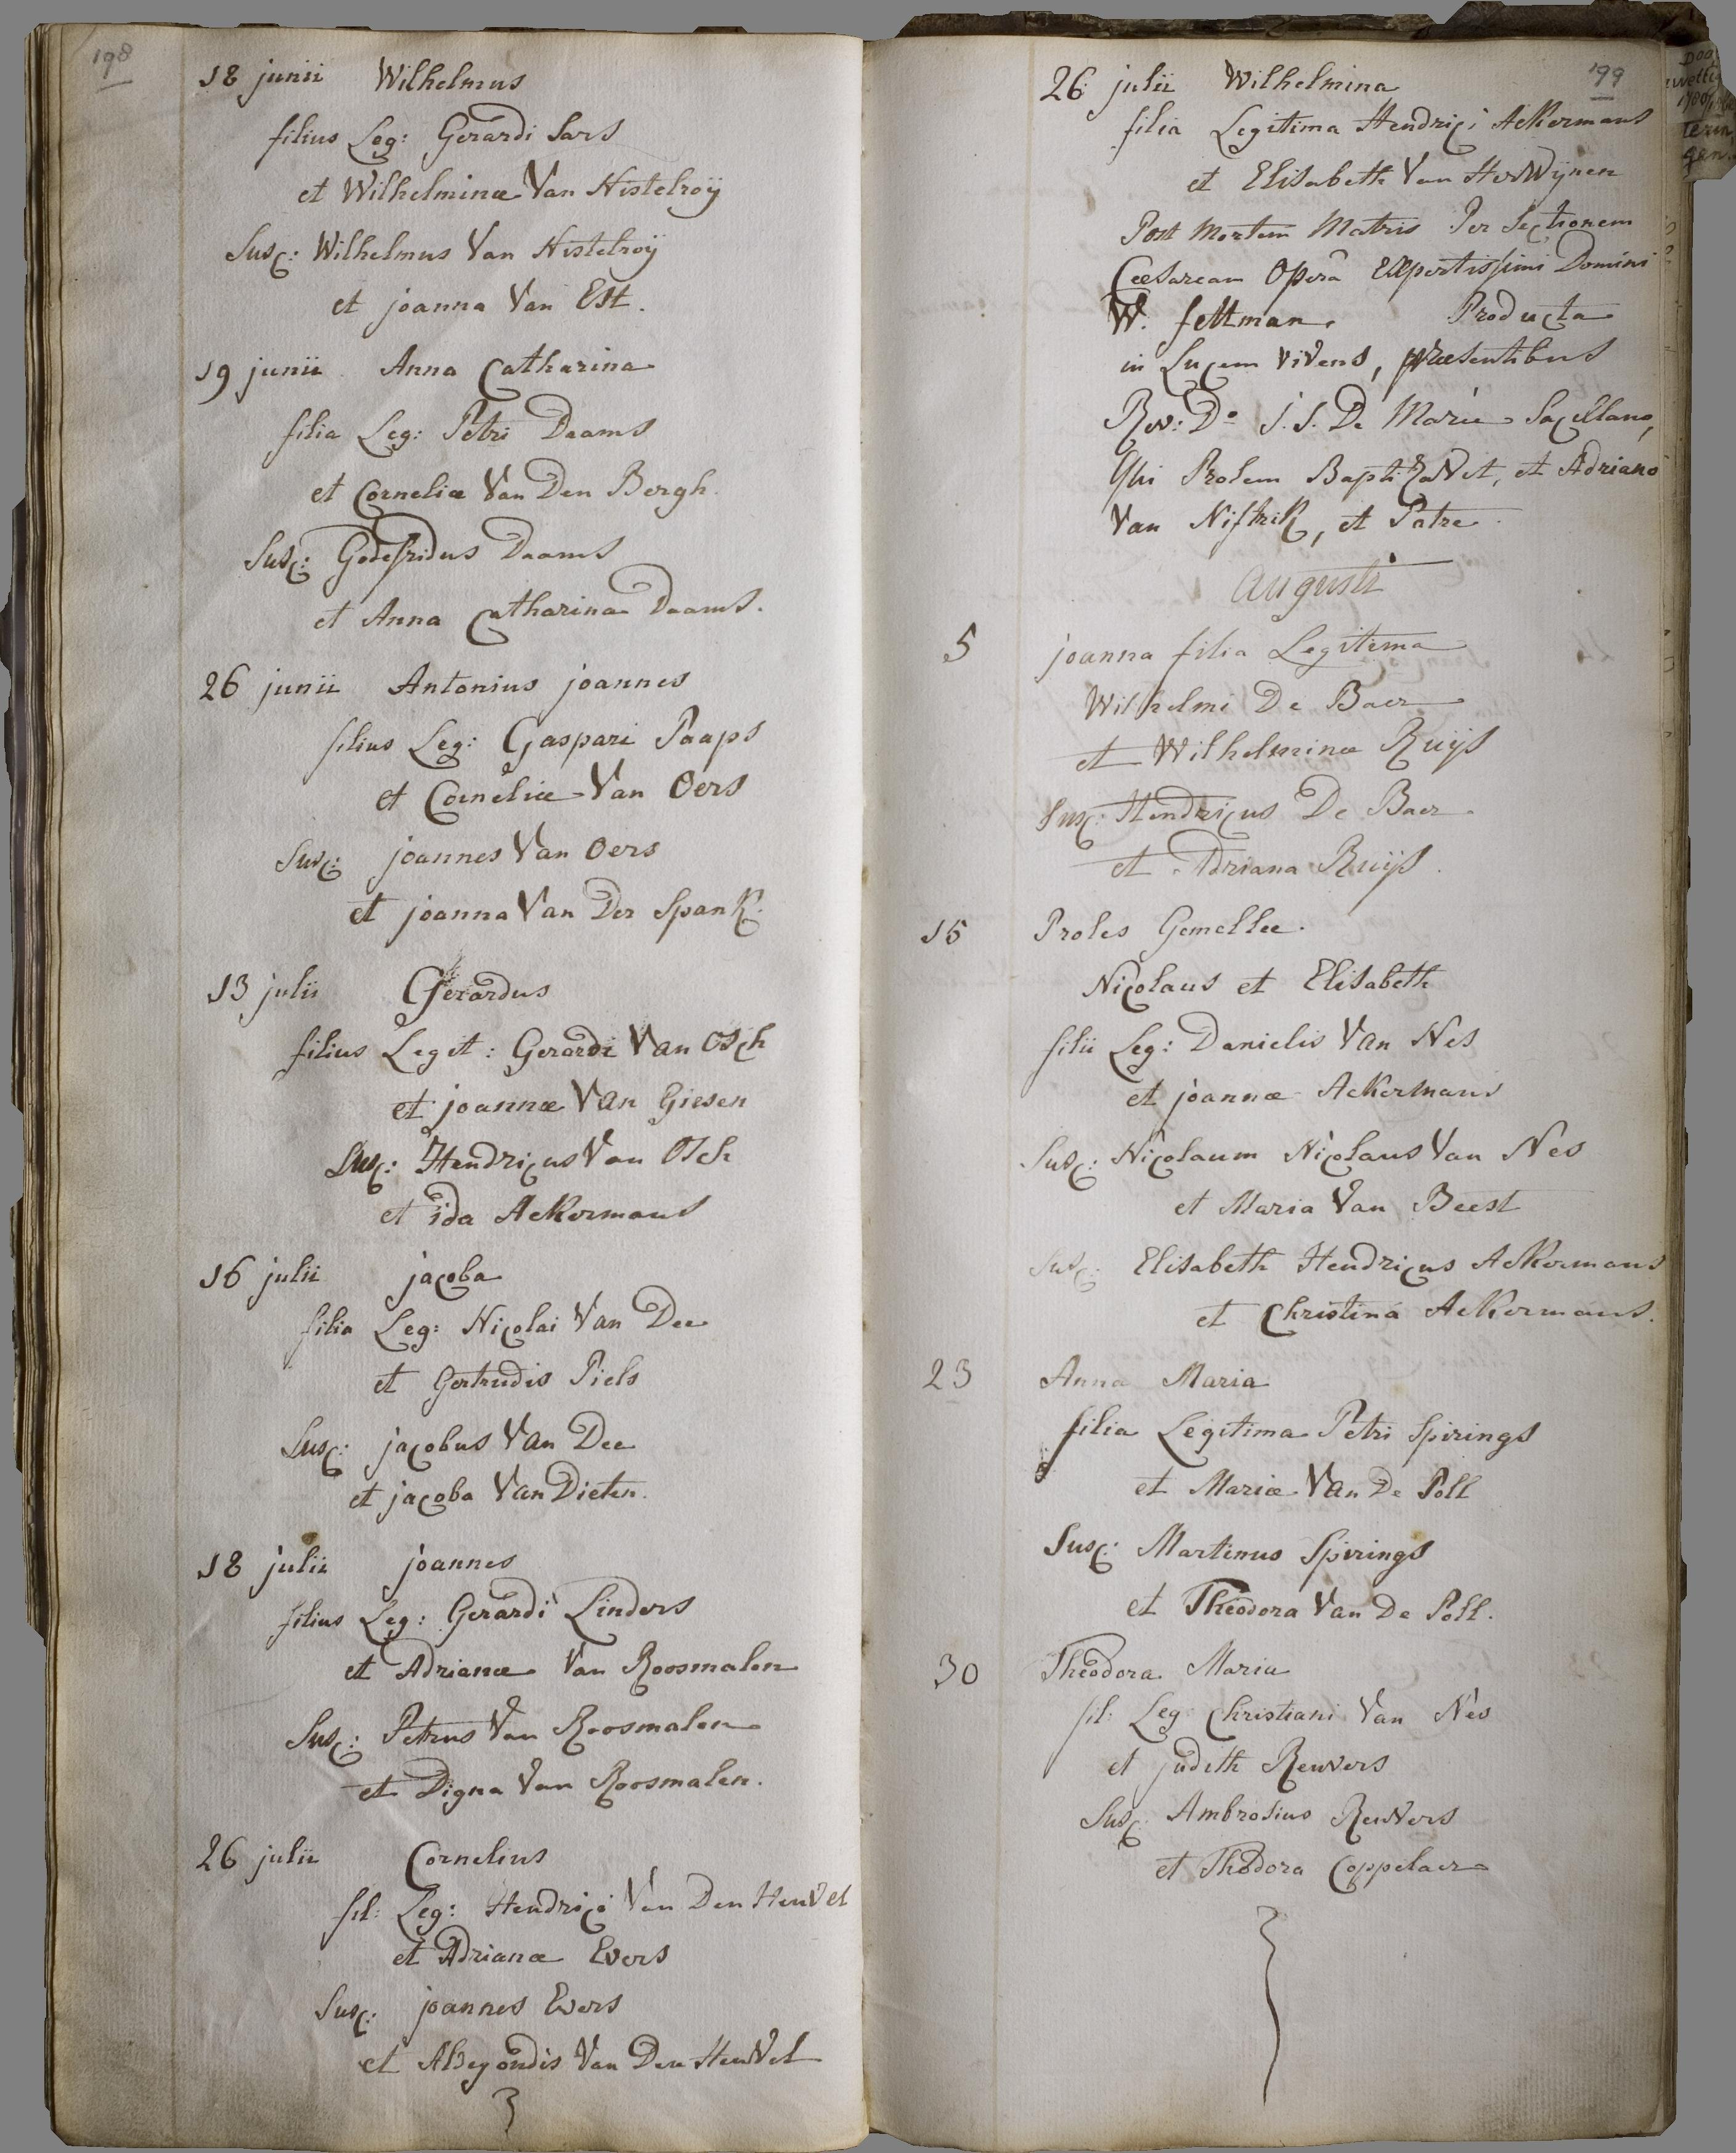 198
18 junii Wilhelmus
filius Leg: Gerardi Sars
et Wilhelminæ Van Nistelroÿ
Susc: Wilhelmus Van Nistelroÿ
et joanna Van Est.
19 junii Anna Catharina
filia Leg: Petri Daams
et Corneliæ Van Den Bergh.
Susc: Godefridus Daams
et Anna Catharina Daams.
26 junii Antonius joannes
filius Leg: Gaspari Paaps
et Corneliæ Van Oers
Susc: joannes Van Oers
et joanna Van Der Spank.
13 julii Gerardus
filius Legit: Gerardi Van Osch
et joannæ Van Giesen
Susc: Hendricus Van Osch
et ida Ackermans
16 julii jacoba
filia Leg: Nicolai Van Dee
et Gertrudis Piels
Susc: jacobus Van Dee
et jacoba Van Dieten.
18 julii joannes
filius Leg: Gerardi Linders
et Adrianæ Van Roosmalen
Susc: Petrus Van Roosmalen
et Digna Van Roosmalen.
26 julii Cornelius
fil: Leg: Hendrici Van Den Heuvel
et Adrianæ Evers
Susc: joannes Evers
et Aldegondis Van Den Heuvel
199
26 julii Wilhelmina
filia Legitima Hendrici Ackermans
et Elisabeth Van Herwijnen
Post Mortem Matris Per Sectionem
Cæsaream Operâ Expertissimi Domini
W. feltman. Producta
in Lucem vivens, præsentibus
Rev: Do J. S. De Marie Sacellano,
Qui Prolem Baptizavit, et Adriano
Van Niftrik, et Patre.
Augusti
5 joanna filia Legitima
Wilhelmi De Baer
et Wilhelminæ Ruijs
Susc: Hendricus De Baer
et Adriana Ruijs.
15 Proles Gemellæ.
Nicolaus et Elisabeth
filii Leg: Danielis Van Nes
et joannæ Ackermans
Susc: Nicolaum Nicolaus Van Nes
et Maria Van Beest
Susc: Elisabeth Hendricus Ackermans
et Christina Ackermans.
23 Anna Maria
filia Legitima Petri Spirings
et Mariæ Van De Poll
Susc: Martinus Spirings
et Theodora Van De Poll.
30 Theodora Maria
fil: Leg: Christiani Van Nes
et judith Reuvers
Susc: Ambrosius Reuvers
et Theodora Coppelaer